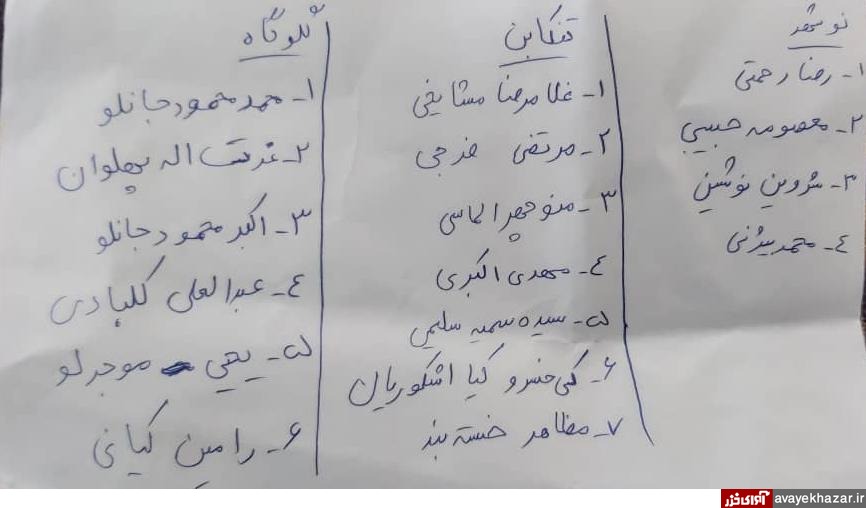 نوشهر
۱- رضا رحمتی
۲- معصومه حبیبی
۳- شروین نوشین
۴- محمد بیژنی
تنکابن
۱- غلامرضا مشایخی
۲- مرتضی فرجی
۳- منوچهر الماسی
۴- مهدی اکبری
۵- سیده سمیه سلیمی
۶- کی خسرو کیا اشکوریان
۷- مظاهر خسته بند
گلوگاه
۱- محمد محمودجانلو
۲- عزت اله پهلوان
۳- اکبر محمودجانلو
۴- عبدالعلی گلبادی
۵- یحیی موجرلو
۶- رامین کیانی
آوای خزر avayekhazar.ir